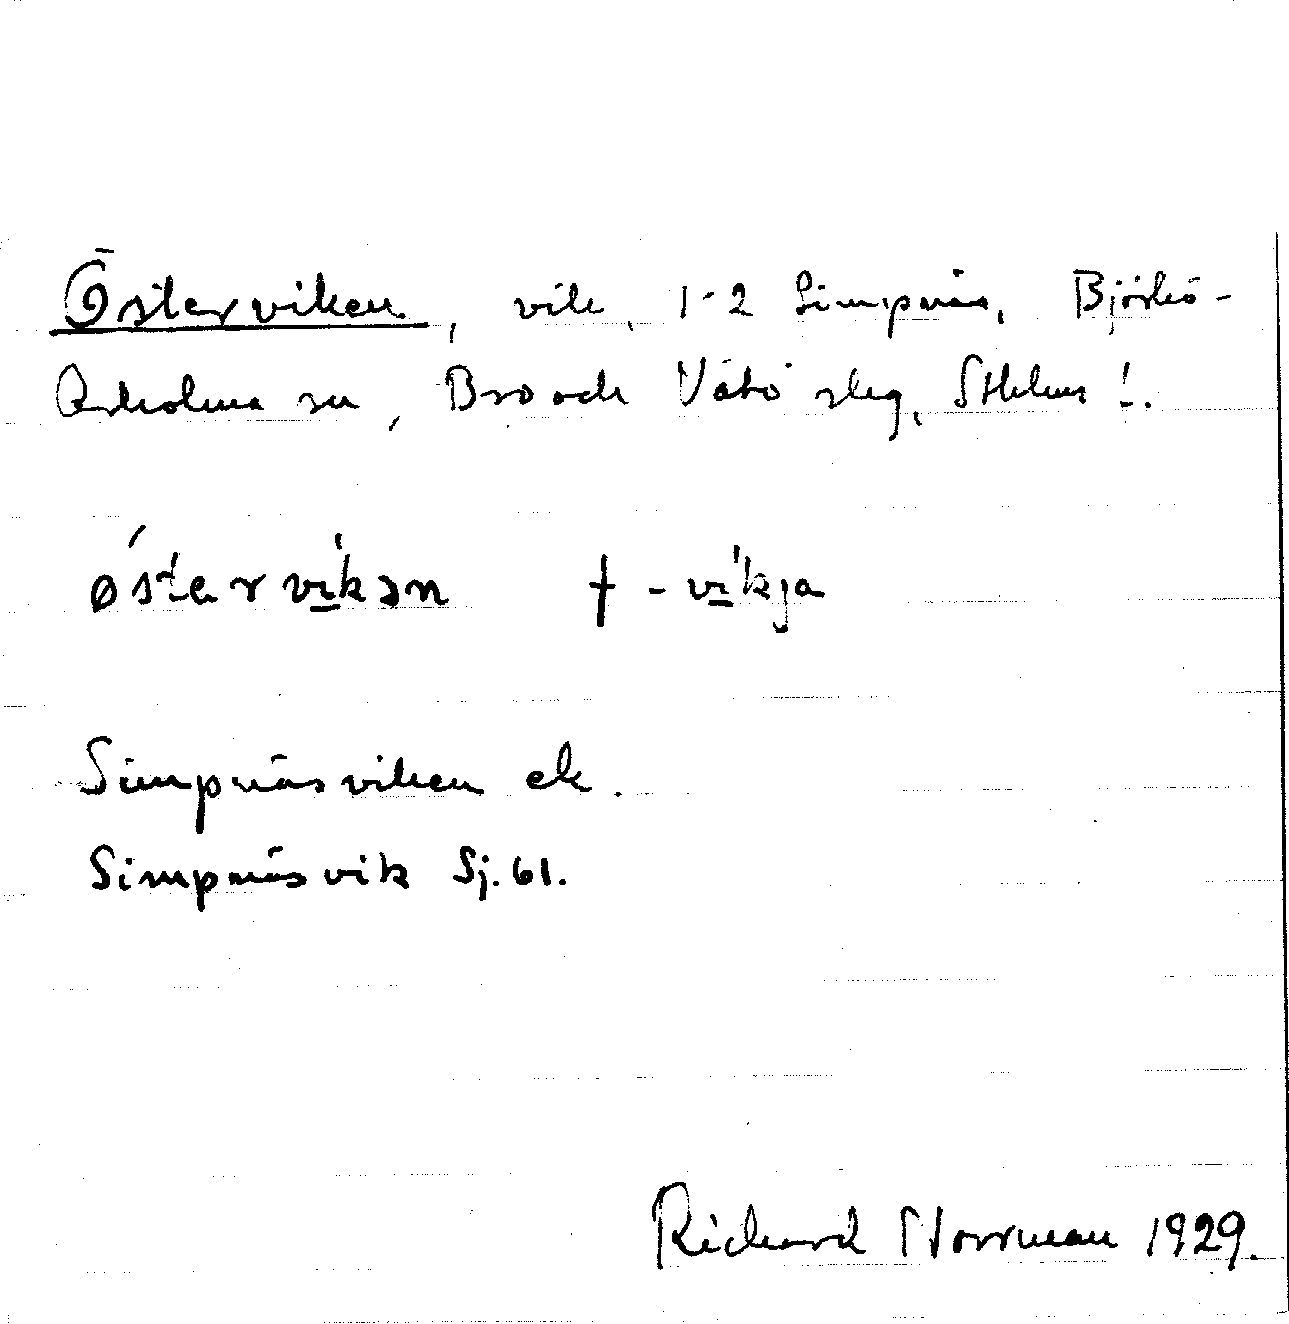 Österviken, vik, 1-2 Simpnäs, Björkö-
Arholma sn, Bro och Vätö slag, Sthlms l.
ǿstarvìkən † -vìkja
Simpnäsviken ek.
Simpnäsvik Sj. 61.
Richard Norrman 1929.